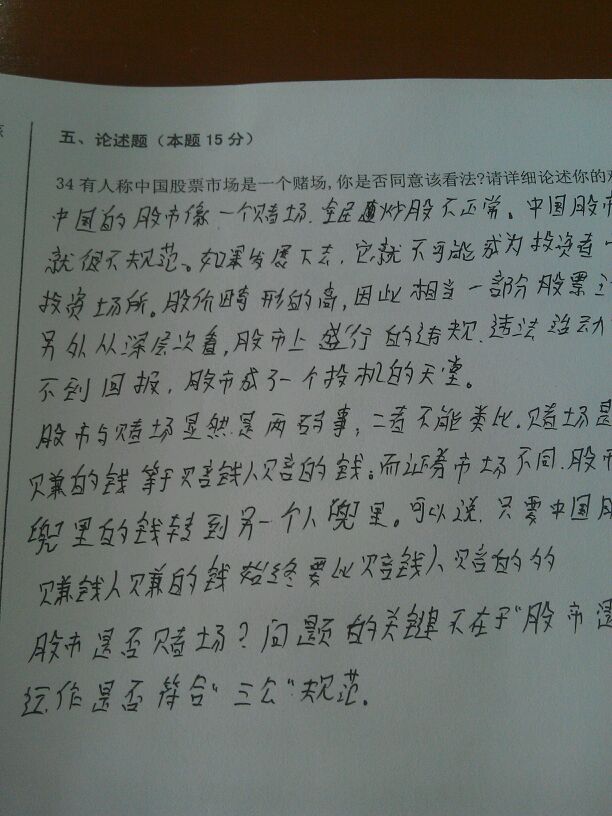 五、论述题（本题15分）
34 有人称中国股票市场是一个赌场,你是否同意该看法?请详细论述你的
中国的股市像一个赌场.全民炒股不正常。中国股市
就很不规范。如果发展下去,它就不可能成为投资者
投资场所。股价畸形的高,因此相当一部分股票
另外从深层次看,股市上盛行的违规.违法活动
不到回报,股市成了一个投机的天堂。
股市与赌场显然是两码事,二者不能类比.赌场是
赚的钱等于赔钱人赔的钱。而证券市场不同.股市
兜里的钱转到另一个人兜里。可以说.只要中国股
赚钱人赚的钱始终要比赔钱人赔的的
股市是否赌场?问题的关键不在于"股市是
运作是否符合"三公"规范。